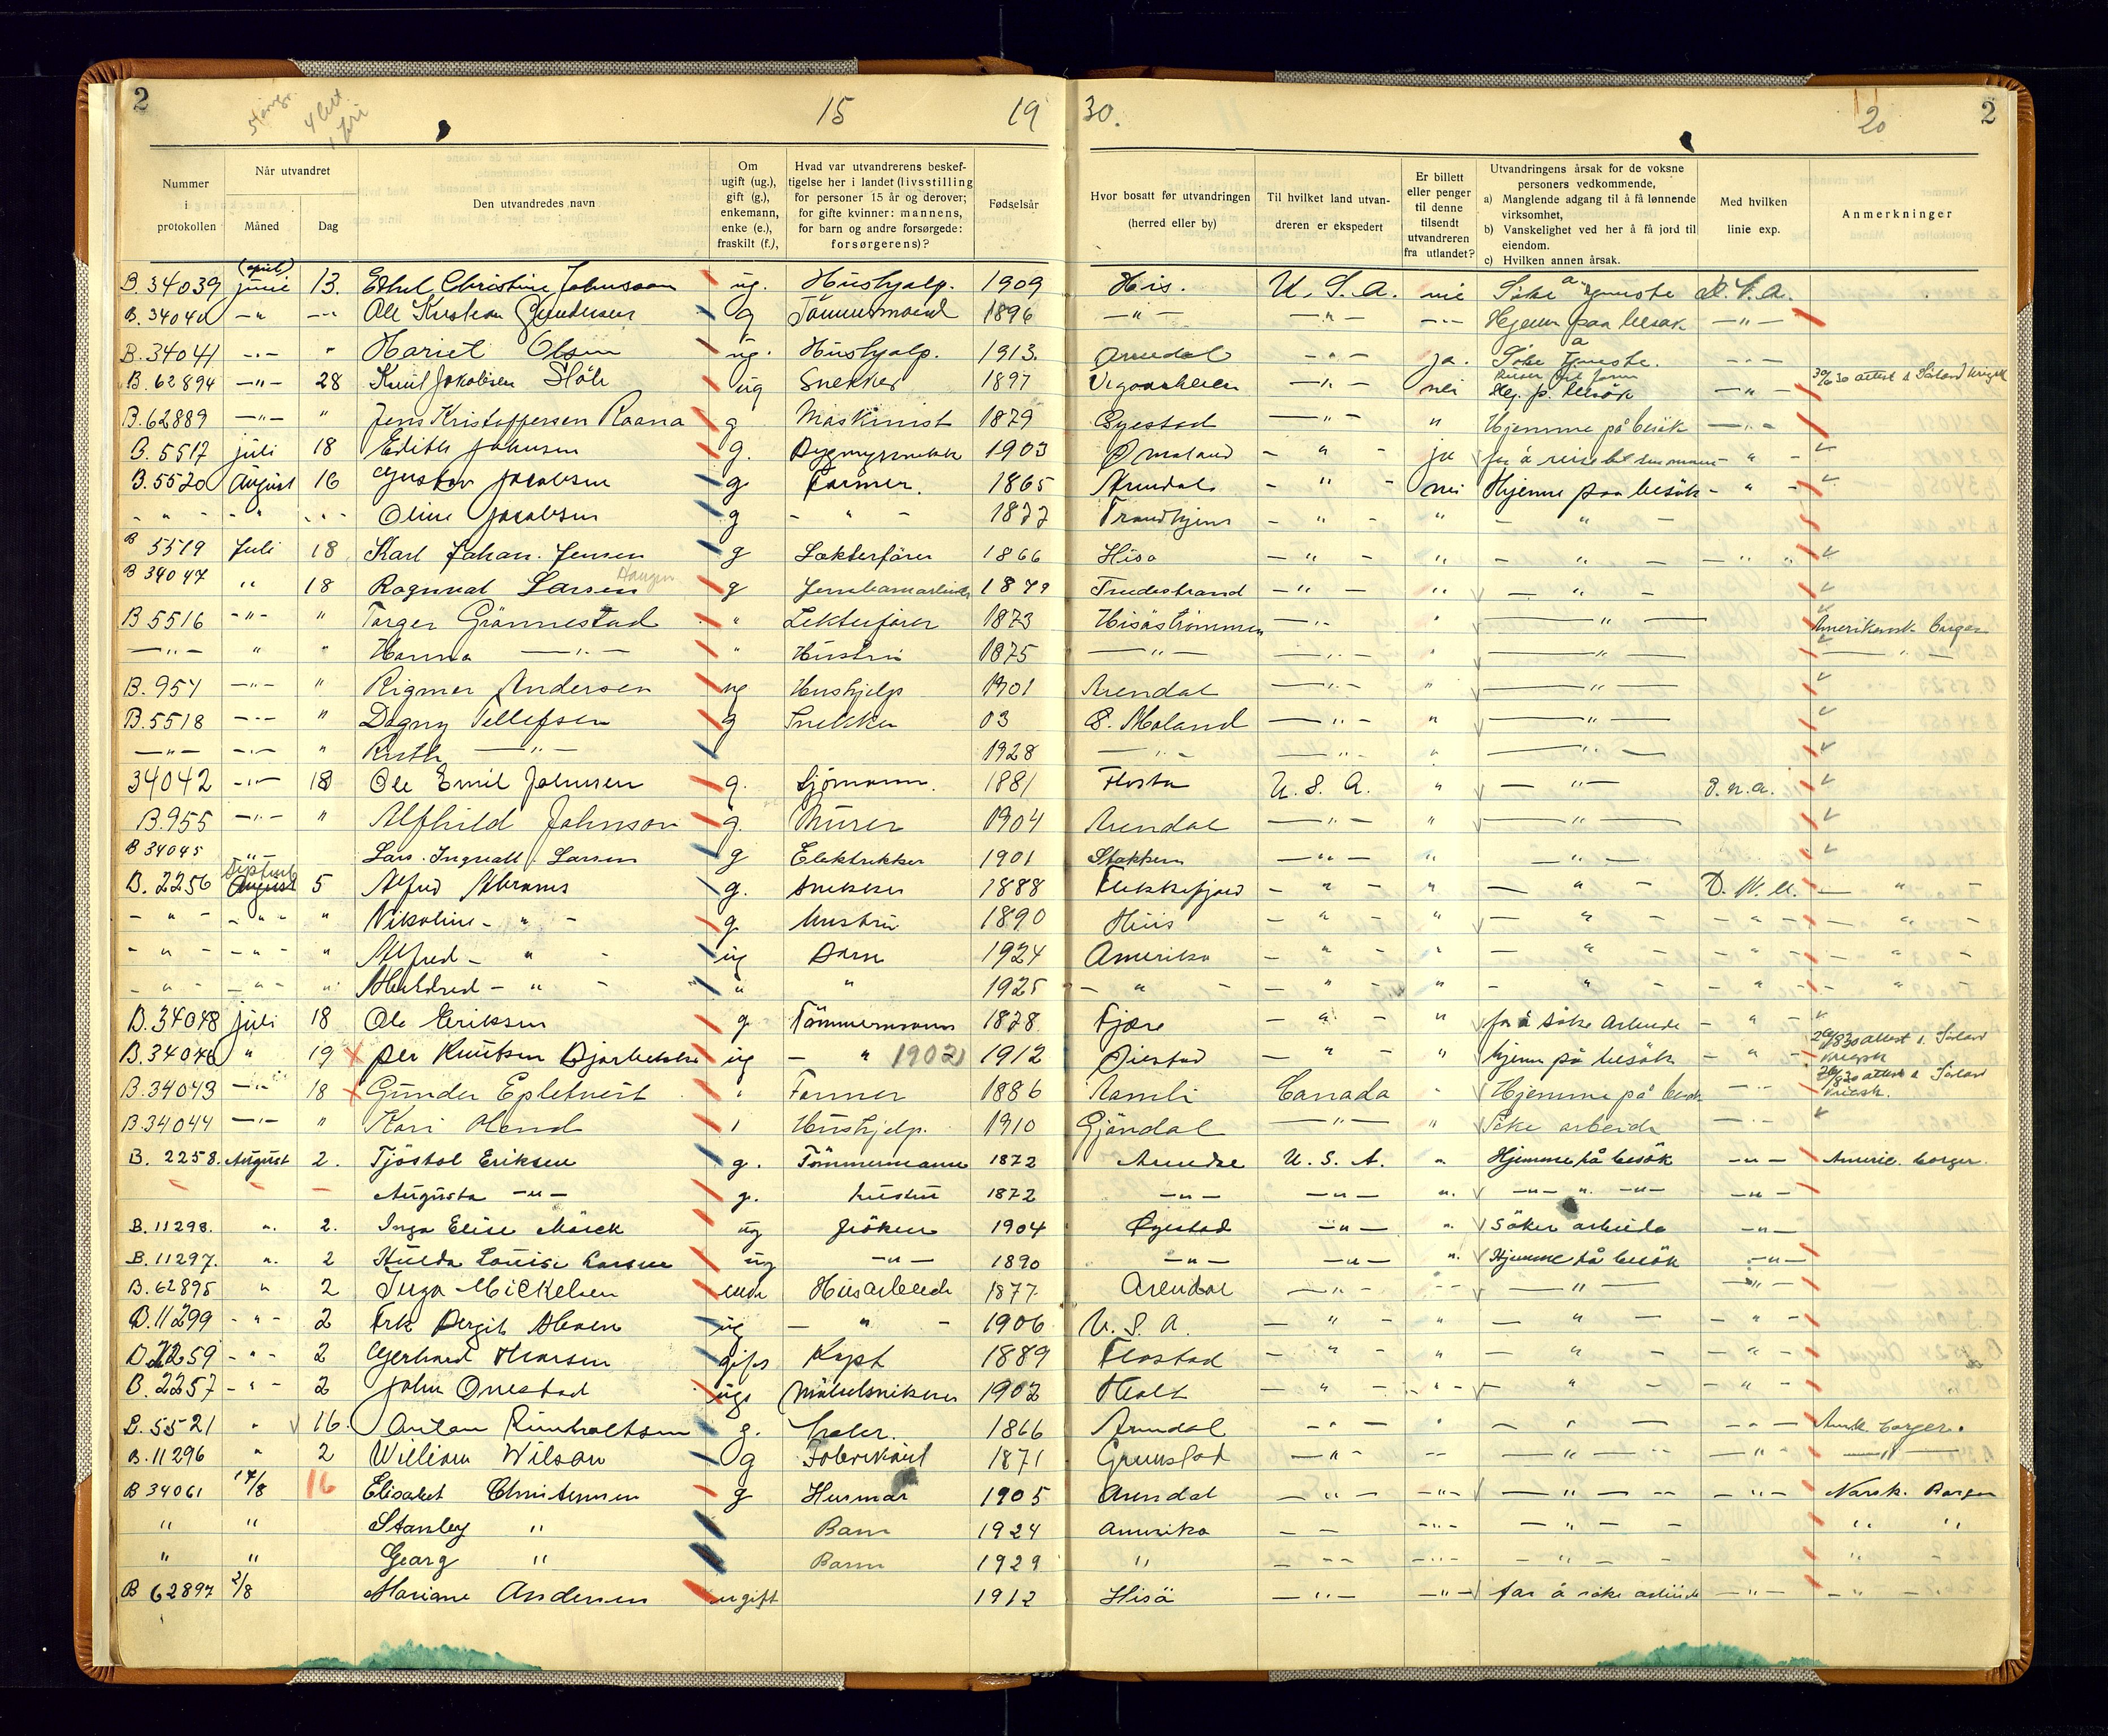 2 4 bill. 1 fri 15 19 30. 20 2
Nummer i protokollen | Når utvandret | Måned | Dag | Den utvandredes navn | Om ugift (ug.), gift (g.), enkemann, enke (e.), fraskilt (f.), | Hvad var utvandrerens beskef- tigelse her i landet (livsstilling for personer 15 år og derover; for gifte kvinner: mannens, for barn og andre forsørgede: forsørgerens)? | Fødselsår | Hvor bosatt før utvandringen (herred eller by) | Til hvilket land utvan- dreren er ekspedert | Er billett eller penger til denne tilsendt utvandreren fra utlandet? | Utvandringens årsak for de voksne personers vedkommende, a) Manglende adgang til å få lønnende virksomhet, b) Vanskelighet ved her å få jord til eiendom. c) Hvilken annen årsak. | Med hvilken linie exp. | Anmerkninger
B. 34039 (april) juni 13. Ethel Christine Johnsson ug. Hushjalp. 1909 His. U. S. A. nei Söke a tjeneste
B. 34040 -"- -"- Ole Kristian Gundersen g Tömmermand 1896 -"- -"- -"- Hjem paa besøk -"-
B. 34041 -"- " Hariet Olsen ug. Hushjalp. 1913. Arendal -"- ja. Söke a tjeneste. -"-
B. 62894 -"- 28 Knut Jakobsen Stöle ug Snekker 1897 Vegaarsheien -"- nei Hj. p. besök -"- 30/6 30 attest
B. 62889 -"- " Jens Kristoffersen Raana g Maskinist 1879 Öyestad -"- " Hjemme på besök -"-
B. 5517 juli 18 Edith Johnsen g. 1903 Ø Moland - " - ja for å reise til - " -
B. 5520 August 16 Gustav Jacobsen g. Farmer. 1865 Arendal - " - nei Hjemme paa besök - " -
- " - - " - - " - Oline Jacobsen g - " - 1877 Trondhjem - " - " - " -
B 5519 Juli 18 Karl Johan Jensen g Lekterfører 1866 Hisø - " - " - " - - " -
B 34047 " 18 Ragnvald Larsen Haugen g Jernbanearbeider 1879 Tvedestrand - " - " - " -
B 5516 -"- " Torger Grönnestad " Lekterfører 1873 Hisöströmmen -"- " -"- Amerikansk borger
-"- " " Hanna -"- " Hustru 1875 -"- -"- " -"- -"-
B. 954 -"- " Rigmor Andersen ug Hushjelp 1901 Arendal -"- " -"-
B. 5518 -"- " Dagny Tellefsen g Snekker 03 Ø. Moland -"- " -"-
-"- -"- " Ruth -"- 1928 -"- -"- " -"-
34042 -"- 18 Ole Emil Johnsen g. Sjömann. 1881 Flosta U. S. A. " -"- d. n. a.
B. 955 -"- " Alfhild Johnson g. Murer 1904 Arendal -"- " -"-
B 34045 " Lars Ingvald Larsen g Elektrikker 1901 Stokken -"- " -"-
B. 2256 Septemb August 5 Alfred Abrams g. snekker 1888 Flekkefjord - " - " - " - D. N. A. - " -
- " - - " - " Nikoline - " - g. Hustru 1890 Hiis - " - " - " - - " - - " -
- " - - " - " Alfred - " - ug Barn 1924 Amerika - " - " - " - - " - - " -
- " - - " - " Mildred - " - " " 1925 - " - - " - " - " - - " - - " -
B. 34048 juli 18 Ole Eriksen g. Tömmermann 1878 Fjære - " - " for å söke Arbeide - " -
B. 34046 " 19 x Per Knutsen Bjorbekke ug - " 1902 1912 Øiestad - " - " hjem på besök - " - 29/8 30 attest
B. 34043 -"- 18 x Gunder Epletveit " Farmer 1886 Aamli Canada " Hjemme på besök -"- 29/8 30 attest
B. 34044 -"- " Kari " Hushjelp. 1910 Gjöndal -"- " Söke arbeide -"-
B. 2258. August 2. Tjöstol Eriksen g. Tömmermann 1872 Arendal U. S. A. " Hjemme på besök -"- Amerik. borger.
- - - Augusta -"- g. hustru 1872 -"- -"- ". -"- ". -"- -"-
B. 11298. ". 2. Inga Elise Mörck ug fröken 1904 Øyestad -"- ". Söker arbeide -"-
B. 11297. ". 2 Hulda Louise Larsen ug -"- 1890 -"- -"- ". Hjemme på besök -"-
B. 62895 " 2 Inga Mickelsen enke Husarbeide 1877 Arendal -"- -- -"- -"-
B. 11299 - " - 2 Frk Bergit ug - " - 1906 U. S. A. - " - " - " - - " -
B. 2259 - " - 2 Gerhard gift Kapt 1889 Flostad - " - " - " - - " -
B. 2257 - " - 2 John Onestad ug. Möbelsnikker 1902 Holt - " - - " - - " - - " -
B. 5521 " 16. Anton Reinholtsen g. 1866 Arendal - " - " - " - - " - Amk. borger.
B. 11296 " 2 William Wilson g Fabrikant 1871 Grimstad -"- -- -"- -"- -"-
B 34061 14/8 16 Elisabet Christensen g Husmor 1905 Arendal -"- -"- -"- -"- Norsk. Borger
" " Stanley " Barn 1924 Amerika - - -"- -"- - " "
" " Georg " Barn 1929 " - -- -"- -"- - " -
B 62897 2/8 Mariane Andersen ugift 1912 Hisö -"- -"- for å söke arbeide -"- -"-